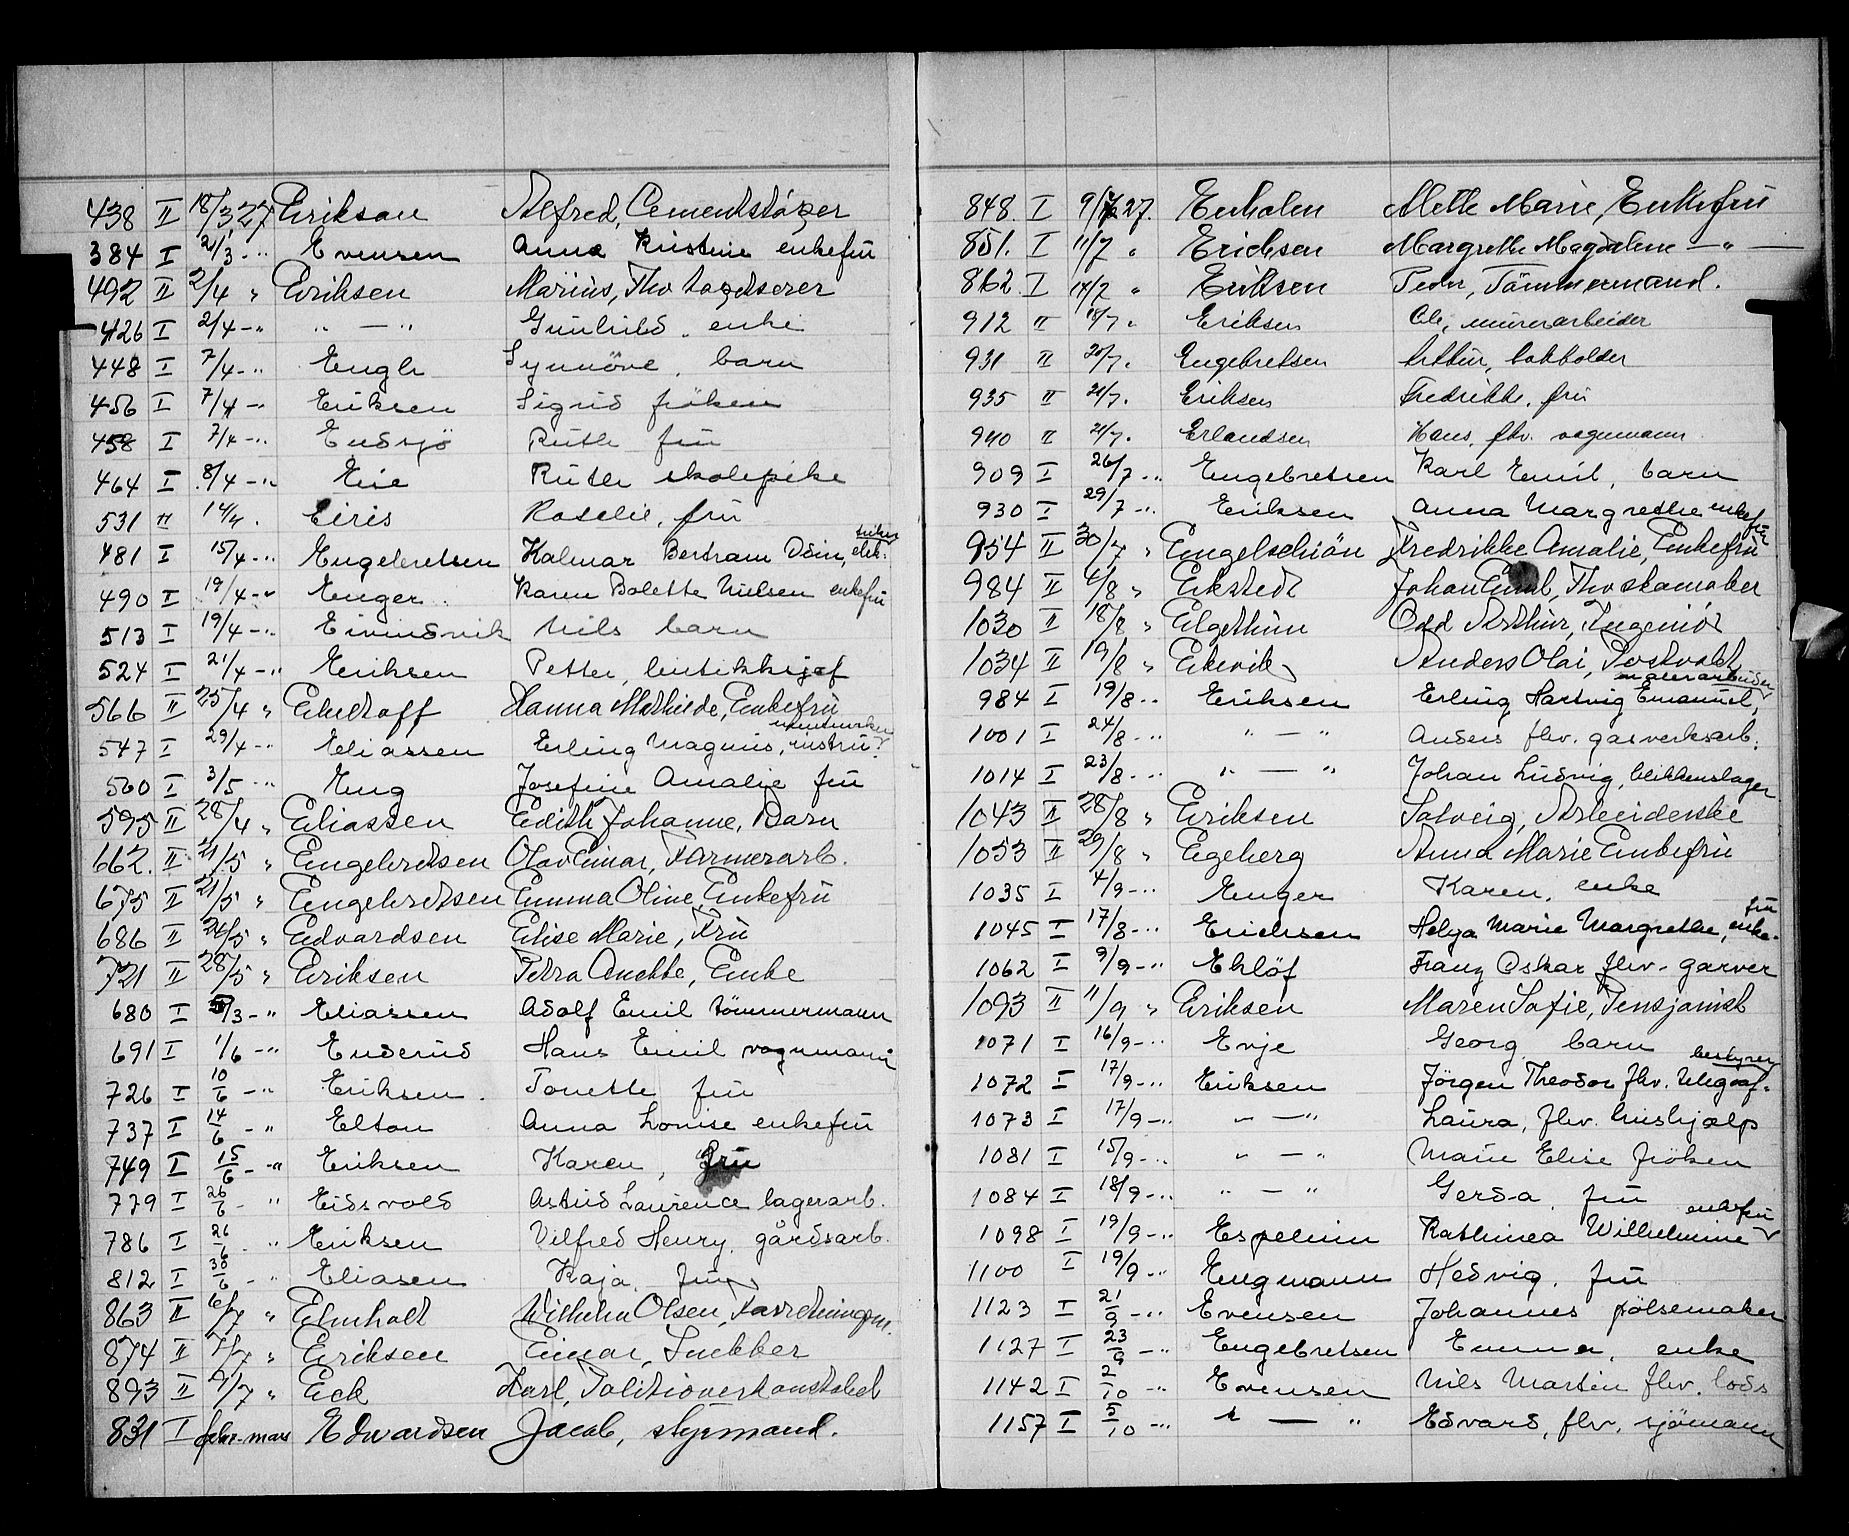 438 II 18/3 27 Erikson Alfred, Cementstøper
384 I 21/3 -" Evensen Anna Kristine enkefru
492 II 2/4 " Eriksen Marius, Fhv
426 I 2/4 -" " — " Gunhild. enke
448 I 7/4 -" Engh Synnöve, barn
456 I 7/4 -" Eriksen Sigrid fröken
458 I 7/4 -" Endsjö Ruth fru
464 I 8/4 -" Eie Ruth skolepike
531 II 14/4. Eiris Roselie, fru
481 I 15/4 -" Engebretsen Halmar Bertram Odin,
490 I 19/4 -" Enger Karen Bolette Nielsen enkefru
513 I 19/4 -" Eivindsvik Nils barn
524 I 21/4 -" Eriksen Petter, butikksjef
566 II 25/4 " Hanna Mathilde, Enkefru
547 I 29/4 -" Eliassen Erling Magnus,
560 I 3/5 -" Eng Josefine Amalie fru
595 II 28/4 " Eliassen Edith Johanne, Barn
662. II 21/5 " Engebretsen Olav Einar,
675 II 21/5 " Engebretsen Emma Oline Enkefru
686 II 24/5 " Edvardsen Elise Marie, Fru
721 II 28/5 " Eriksen Petra Anette, Enke
680 I -" Eliassen Adolf Emil tömmermann
691 I 1/6 -" Enderud Hans Emil vognmann
726 I 10/6 -" Eriksen. Tonette fru
737 I 14/6 -" Elton Anna Louise enkefru
749 I 15/6 -" Eriksen Karen, fru
779 I 26/6 -" Eidsvold Astrid Laurence lagerarb.
786 I 26/6 -" Eriksen Vilfred Henry, gårdsarb.
812 I 30/6 -" Eliasen Kaja, fru
863 II 6/7 " Elmholt Wilhelm Olsen, Forretningsm.
874 II 7/7 " Eriksen Einar, Snekker
893 II 9/7 " Eck Karl, Politioverkonstabel
831 I febr-mars Edwardsen Jacob, styrmand.
848. I 9/7 27. Enholm Mette Marie, Enkefru
851. I 11/7 " Erichsen Margrethe Magdalene — " —
862. I 14/7 " Eriksen Peder, Tömmermand.
912 II 18/7 " Eriksen Ole, murerarbeider
931 II 20/7. Engebretsen Arthur, bokholder
935 II 21/7. Eriksen Fredrikke, fru
940 II 21/7. Erlandsen Hans, fhv. vognmann
909 I 26/7 -" Engebretsen Karl Emil, barn
930 I 29/7 -" Eriksen Anna Margrethe enkefru
954 II 30/7 " Engelschiön Fredrikke Amalie, Enkefru
984 II 4/8 " Ekstedt Johan Emil, Fhv skomaker
1030 II 18/8 " Elgethun Odd Arthur, Ingeniør
1034 II 19/8 " Ekevik Anders Olai,
malerarbeider
984 I 19/8 -" Eriksen Erling Hartvig Emanuel,
1001 I 24/8 -" " — " Anders fhv. gasverksarb.
1014 I 23/8 -" " — " Johan Ludvig, blikkenslager
1043 II 28/8 " Eriksen Solveig, Arbeiderske
1053 II 29/8 " Egeberg Anna Marie Enkefru
1035 I 4/9 -" Enger Karen, enke
fru
1045 I 17/8 -" Erichsen Helga Marie Margrethe, enke-
1062 I 9/9 -" Eklöf Franz Oskar fhv. garver
1093 II 11/9 " Eriksen Maren Sofie, Pensjonist
1071 I 16/9 -" Evje Georg, barn
bestyrer
1072 I 17/9 -" Eriksen Jörgen Theodor fhv. telegraf-
1073 I 17/9 -" " — " Laura, fhv. hushjælp
1081 I 15/9 -" " — " Marie Elise fröken
1084 I 18/9 -" " — " Gerda, fru
enkefru
1098 I 19/9 -" Espelinn Kathinca Wilhelmine
1100 I 19/9 -" Engmann Hedvig, fru
1123 I 21/9 -" Evensen Johannes pölsemaker
1127 I 23/9 -" Engebretsen Emma, enke
1142 I 2/10 -" Evensen Nils Martin fhv. lods
1157 I 5/10 -" " — " Edvard, fhv. sjömann